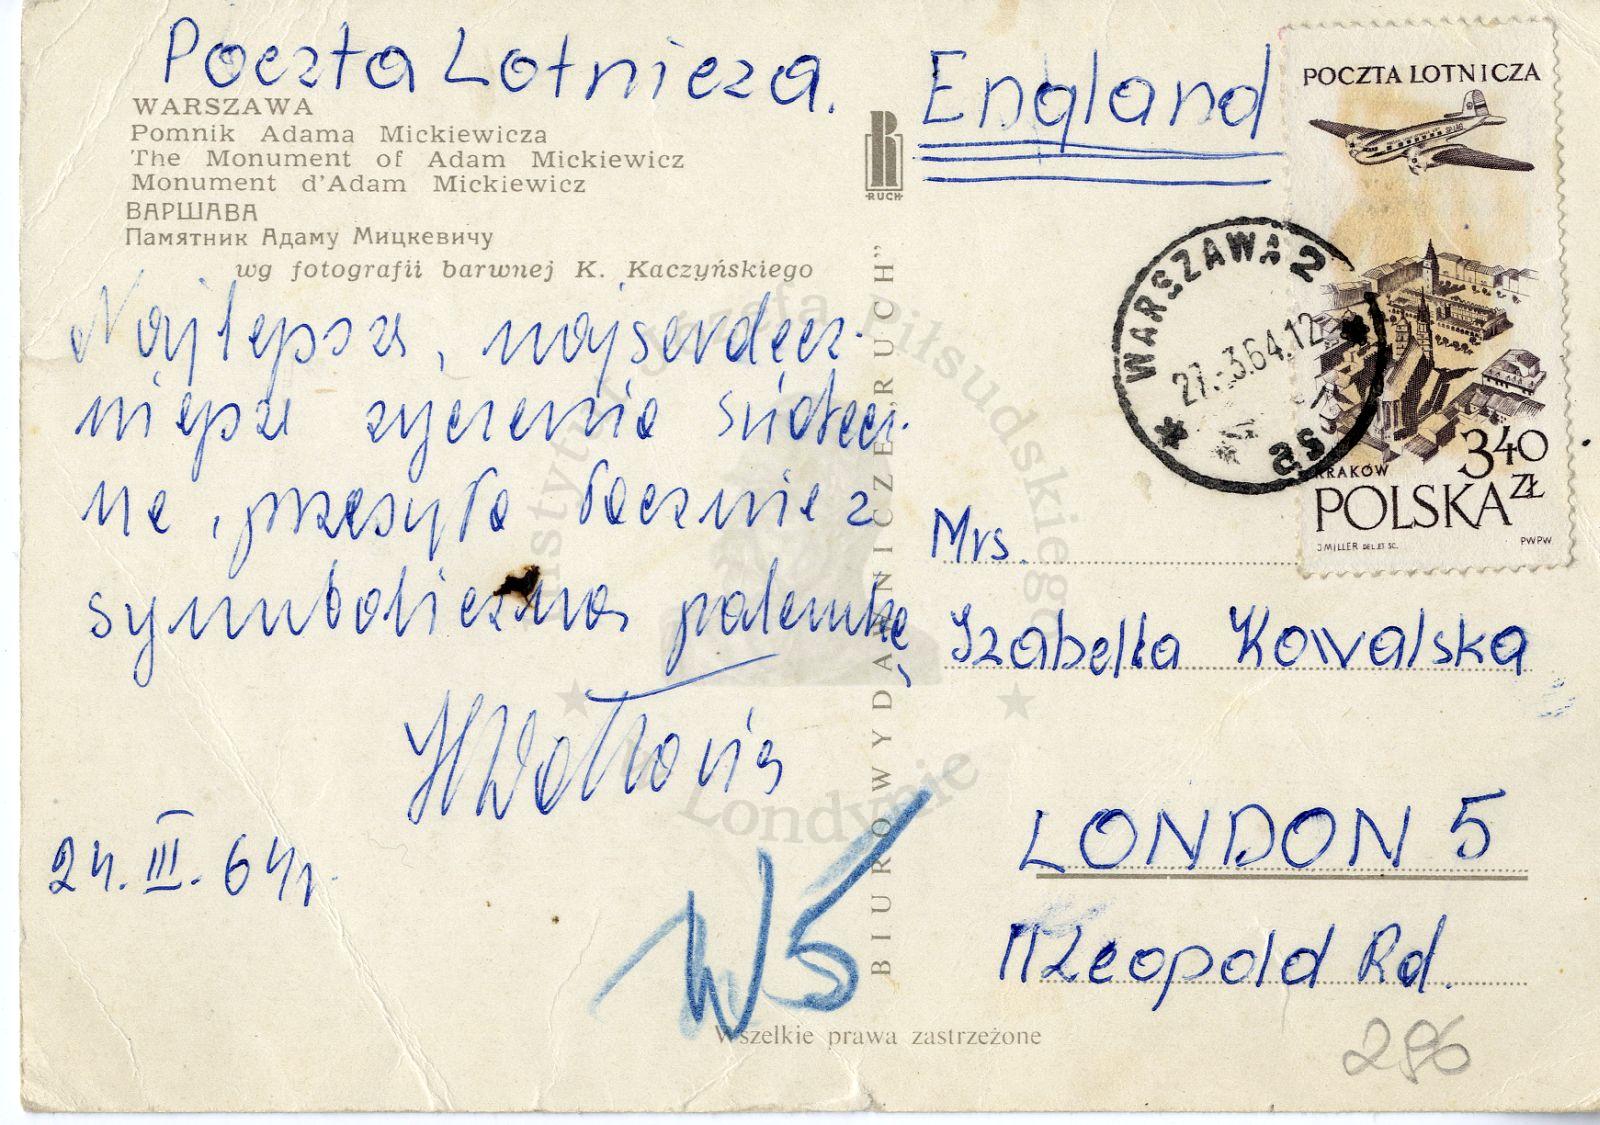 Poczta Lotnicza.
WARSZAWA
Pomnik Adama Mickiewicza
The Monument of Adam Mickiewicz
Monument d'Adam Mickiewicz
ВАРШАВА
Памятник Адаму Мицкевичу
wg fotografii barwnej K. Kaczyńskiego
Najlepsze, najserdecz-
niejsze życzenia świątecz-
ne, przesyła łącznie z
symboliczną palemką
24. III. 64 r.
W5
RUCH
BIURO WYDAWNICZE „RUCH”
Wszelkie prawa zastrzeżone
England
POCZTA LOTNICZA
KRAKÓW
3 40 ZŁ
POLSKA
J MILLER DEL. ET SC.
PWPW
WARSZAWA 2
27.-3.64.12
Mrs.
Izabella Kowalska
LONDON 5
Leopold Rd.
296
Instytut Józefa Piłsudskiego
w Londynie